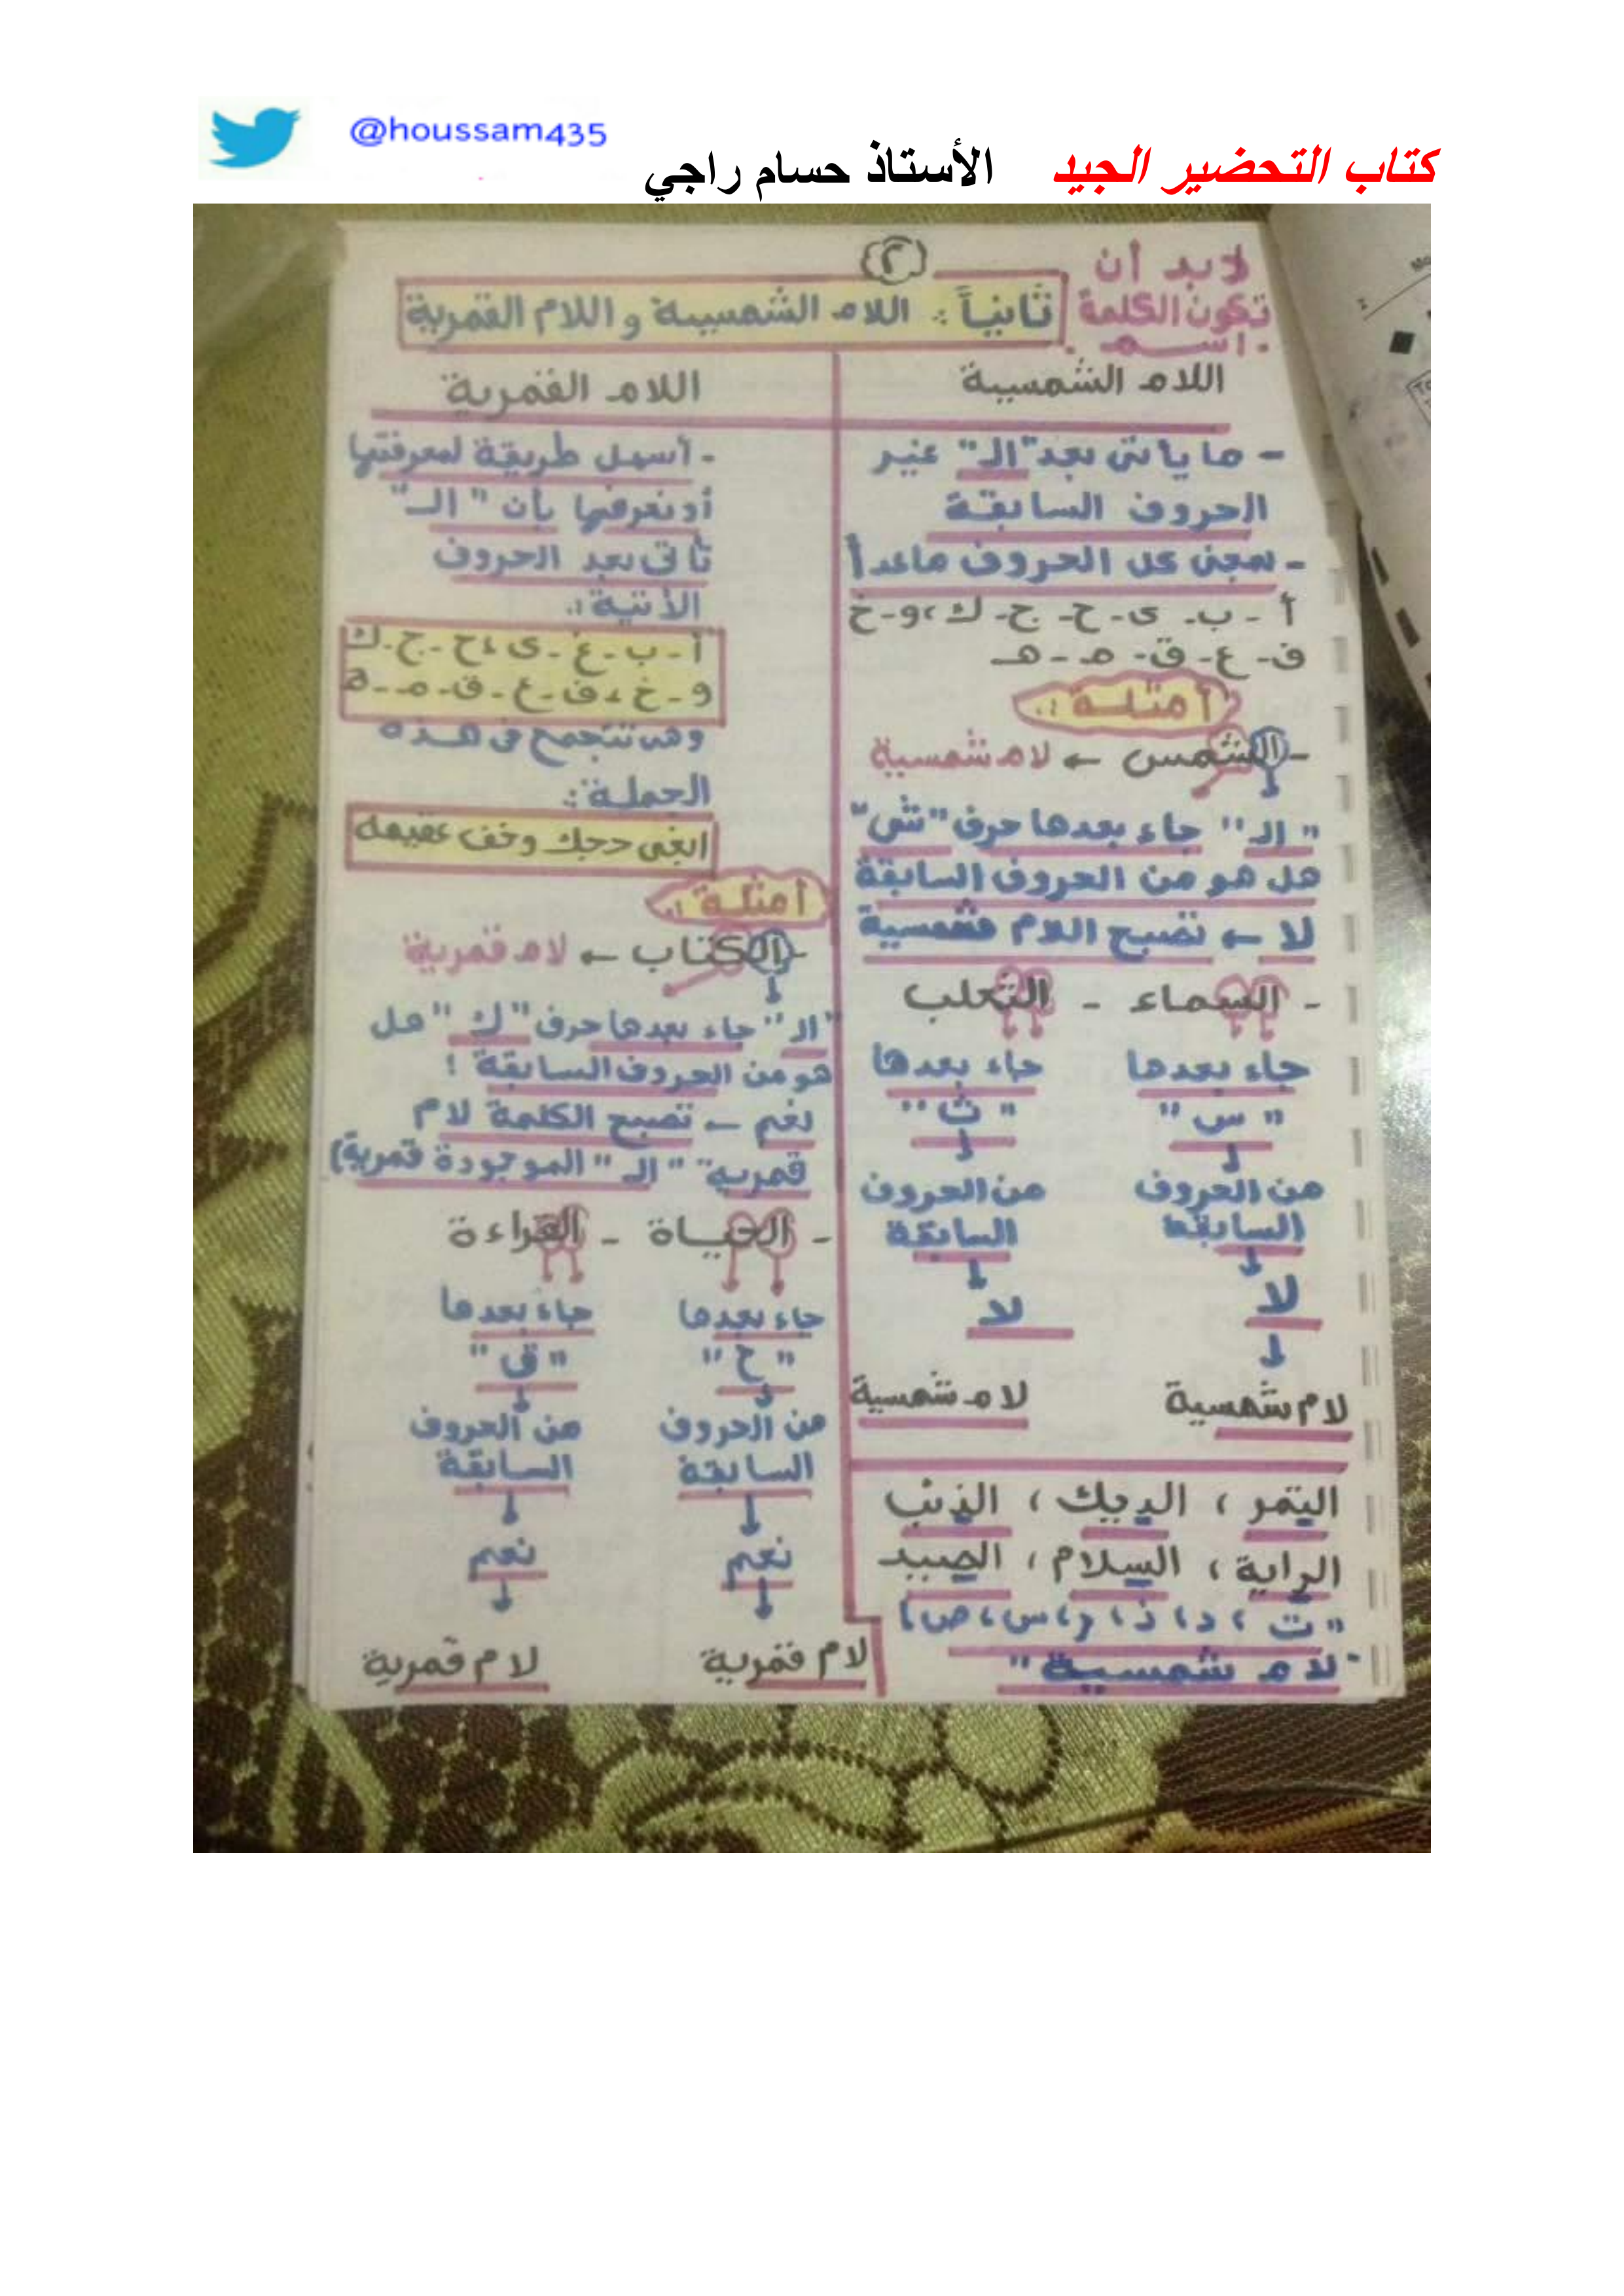 @houssam435
كتاب التحضير الجيد الأستاذ حسام راجي
(٢)
لابد أن
تكون الكلمة
اسم
ثانياً : اللام الشمسية و اللام القمرية
اللام الشمسية
- ما يأتى بعد "الـ" غير
الحروف السابقة
- بمعنى كل الحروف ماعدا
أ - ب - ى - ح - ج - ك ، و - خ
ف - ع - ق - م - هـ
أمثلة :
- الشمس ← لام شمسية
"الـ" جاء بعدها حرف "ش"
هل هو من الحروف السابقة
لا ← تصبح اللام شمسية
- السماء - الثعلب
جاء بعدها جاء بعدها
"س" "ث"
من الحروف من الحروف
السابقة السابقة
لا لا
لام شمسية لام شمسية
التمر ، الديك ، الذئب
الراية ، السلام ، الصيد
"ت ، د ، ذ ، ر ، س ، ص)
"لام شمسية"
اللام القمرية
- أسهل طريقة لمعرفتها
أو نعرفها بأن "الـ"
تأتى بعد الحروف
الأتية :
أ - ب - غ - ى ، ح - ج - ك
و - خ ، ف - ع - ق - م - ه
وهى تتجمع فى هذه
الجملة :
ابغى حجك وخف عقيمه
أمثلة :
- الكتاب ← لام قمرية
"الـ" جاء بعدها حرف "ك" هل
هو من الحروف السابقة !
نعم ← تصبح الكلمة لام
قمرية "الـ" الموجودة قمرية)
- الحياة - القراءة
جاء بعدها جاء بعدها
"ح" "ق"
من الحروف من الحروف
السابقة السابقة
نعم نعم
لام قمرية لام قمرية